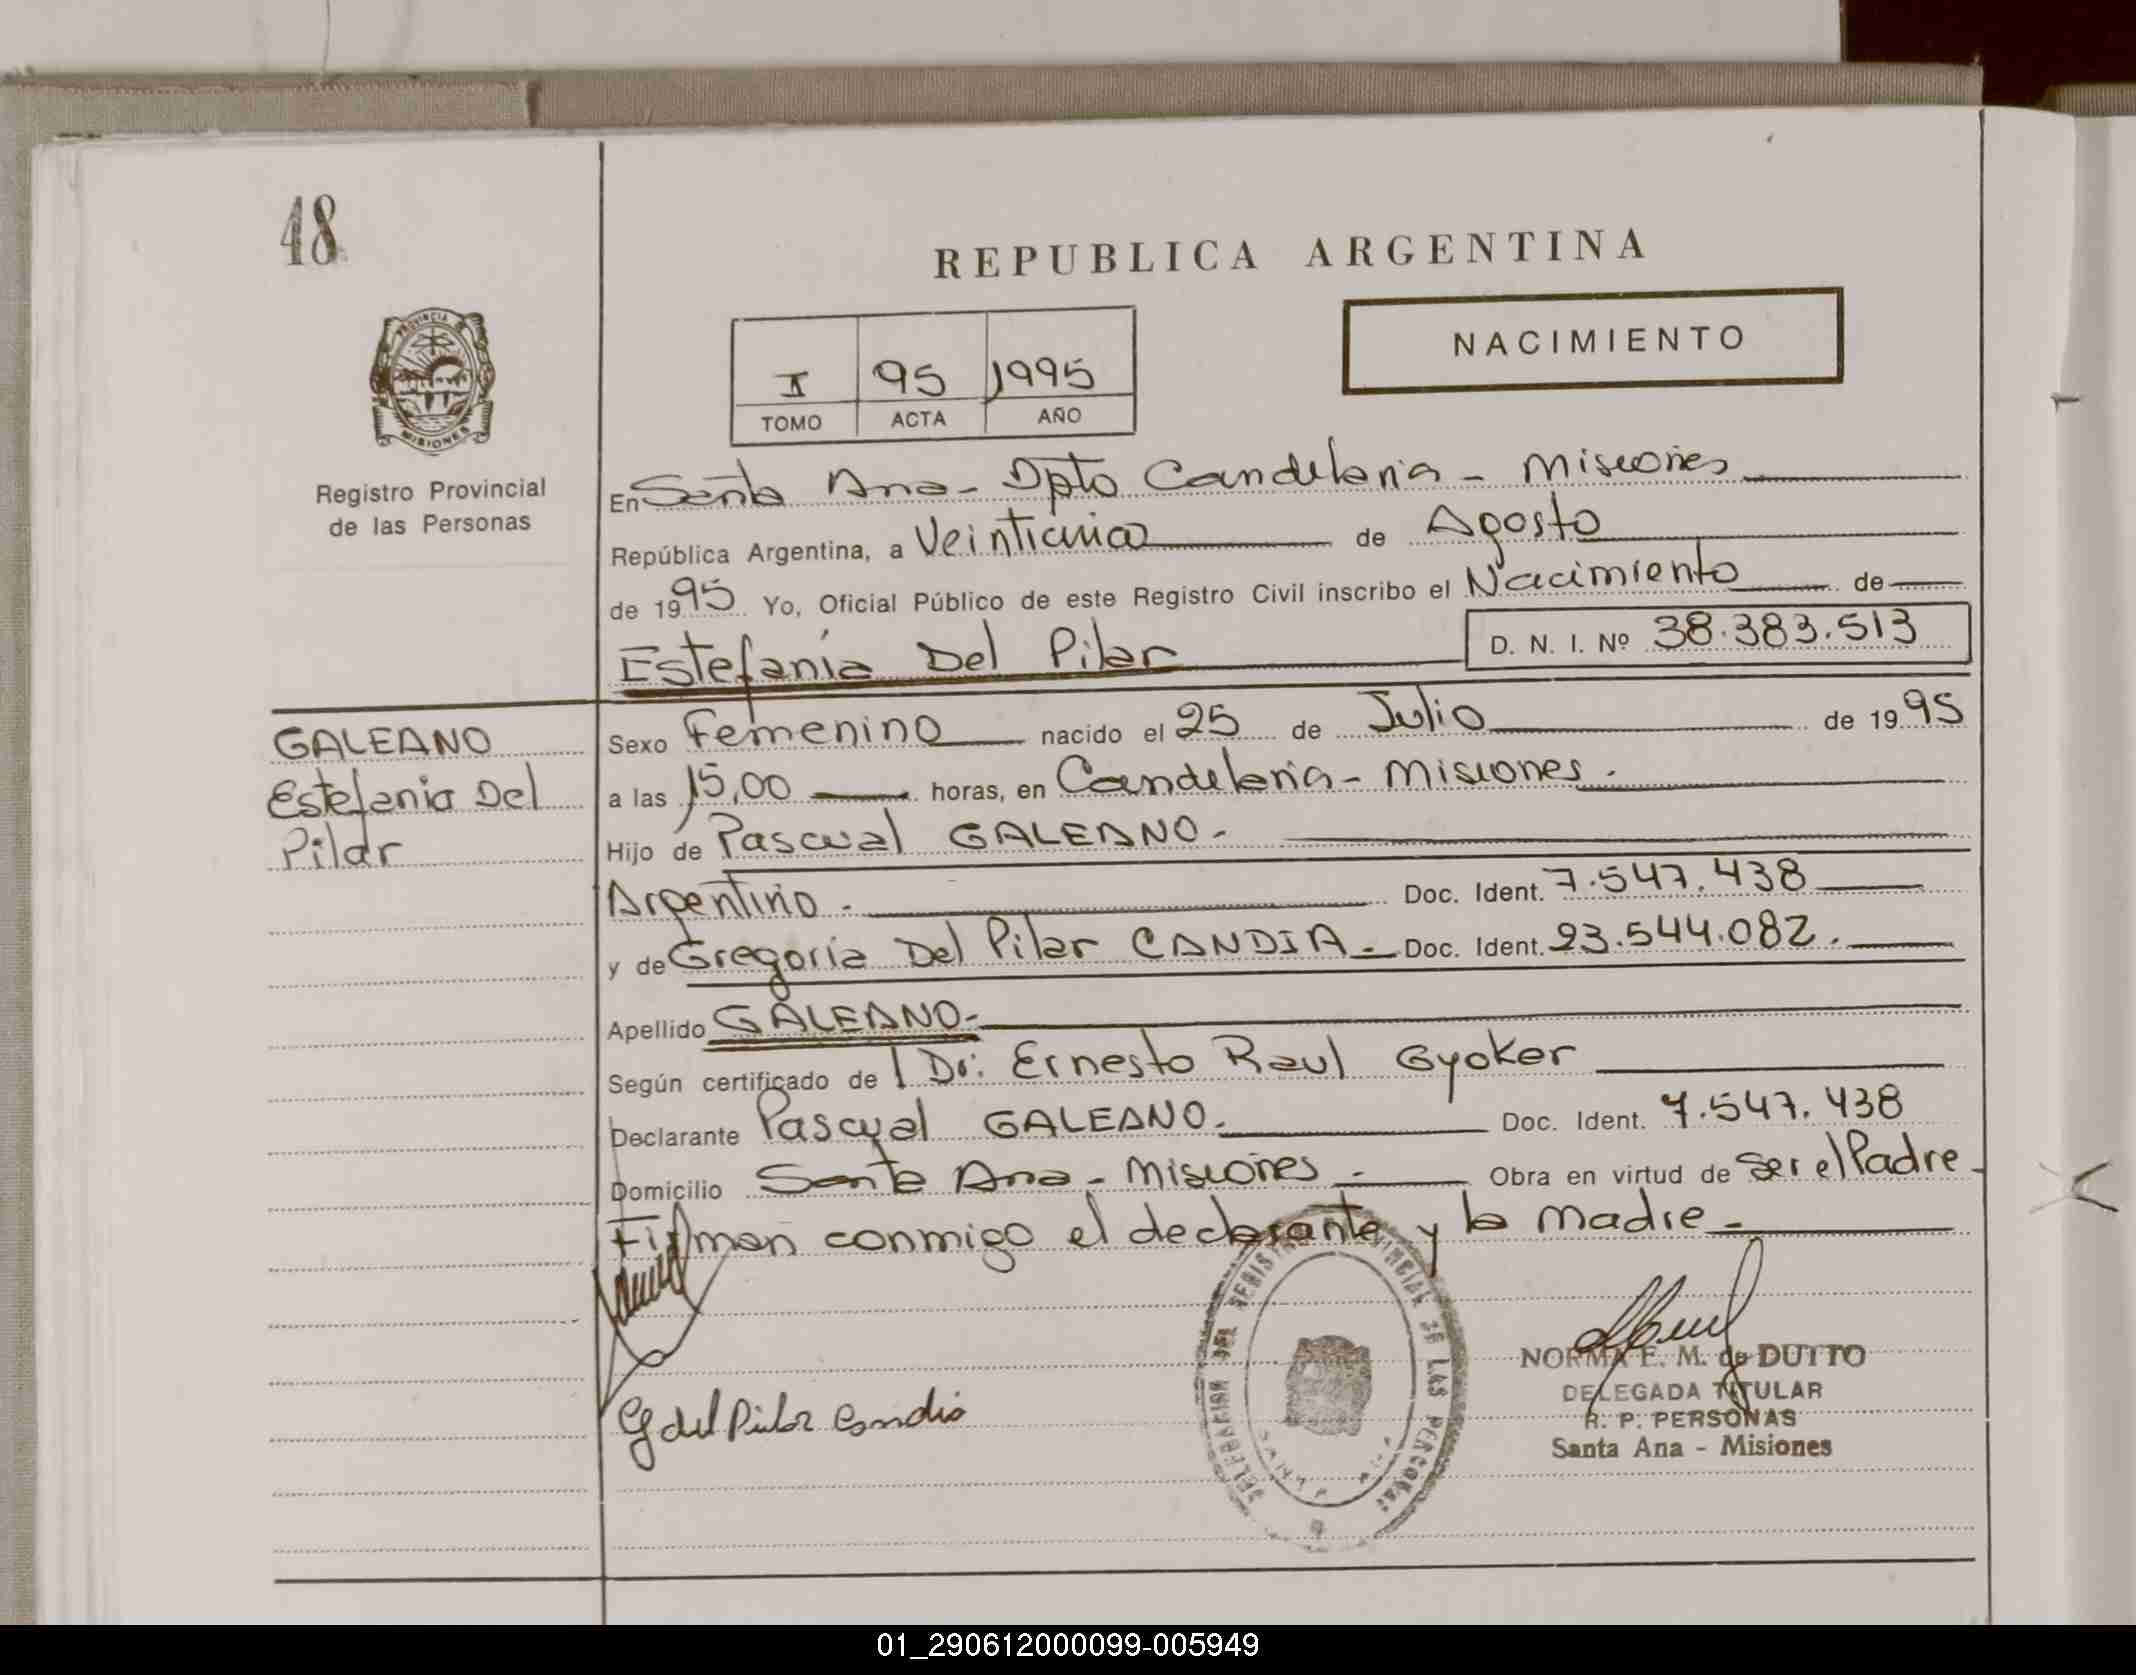 48
REPUBLICA ARGENTINA
NACIMIENTO
I 95 1995
TOMO ACTA AÑO
PROVINCIA DE
MISIONES
Registro Provincial
de las Personas
En Santa Ana - Dpto Candelaria - Misiones
República Argentina, a Veinticinco de Agosto
de 1995 Yo, Oficial Público de este Registro Civil inscribo el Nacimiento de
Estefanía Del Pilar D. N. I. Nº 38.383.513
GALEANO
Estefania Del
Pilar
Sexo Femenino nacido el 25 de Julio de 1995
a las 15,00 horas, en Candelaria - Misiones.
Hijo de Pascual GALEANO-
Argentino - Doc. Ident. 7.547.438
y de Gregoria Del Pilar CANDIA - Doc. Ident. 23.544.082.
Apellido GALEANO-
Según certificado de Dr: Ernesto Raul Gyoker
Declarante Pascual GALEANO. Doc. Ident. 7.547.438
Domicilio Santa Ana - Misiones - Obra en virtud de Ser el Padre -
Firman conmigo el declarante y la madre -
G del Pilar Candia
DELEGACION DEL REGISTRO PROVINCIAL DE LAS PERSONAS
SANTA ANA
NORMA E. M. de DUTTO
DELEGADA TITULAR
R. P. PERSONAS
Santa Ana - Misiones
01_290612000099-005949